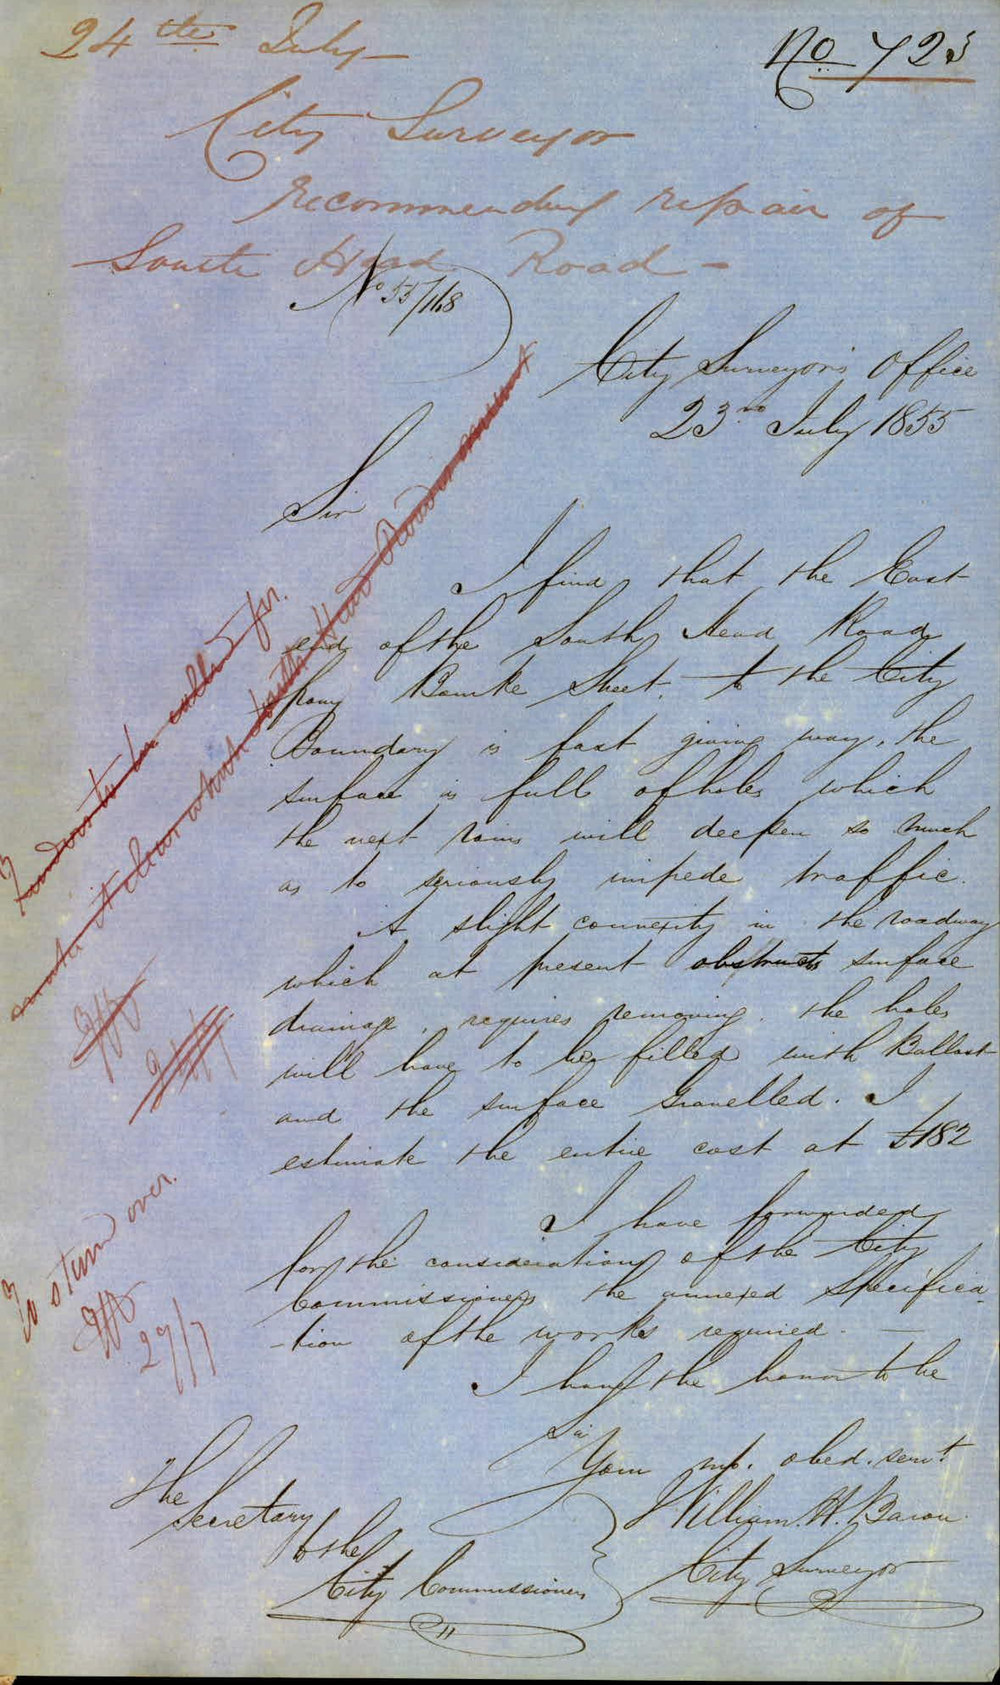 24th July
No 723
City Surveyor
recommending repair of
South Head Road -
No 55/168
City Surveyor's Office
23rd July 1855
Sir
I find that the East
end of the South Head Road
from Bourke Street, to the City
Boundary is fast giving way, the
surface is full of holes which
the next rains will deepen so much
as to seriously impede traffic.
A slight convexity in the roadway
which at present obstructs surface
drainage, requires removing. the holes
will have to be filled with Ballast
and the surface Gravelled. I
estimate the entire cost at £182
I have forwarded
for the consideration of the City
Commissioners the annexed Specifica-
-tion of the works required. —
I have the honor to be
Sir
Your mo. obed. servt
William. H. Baron.
City Surveyor
The
Secretary
to the
City Commissioners
Tenders to be called for.
South Head Road
To stand over.
27/7